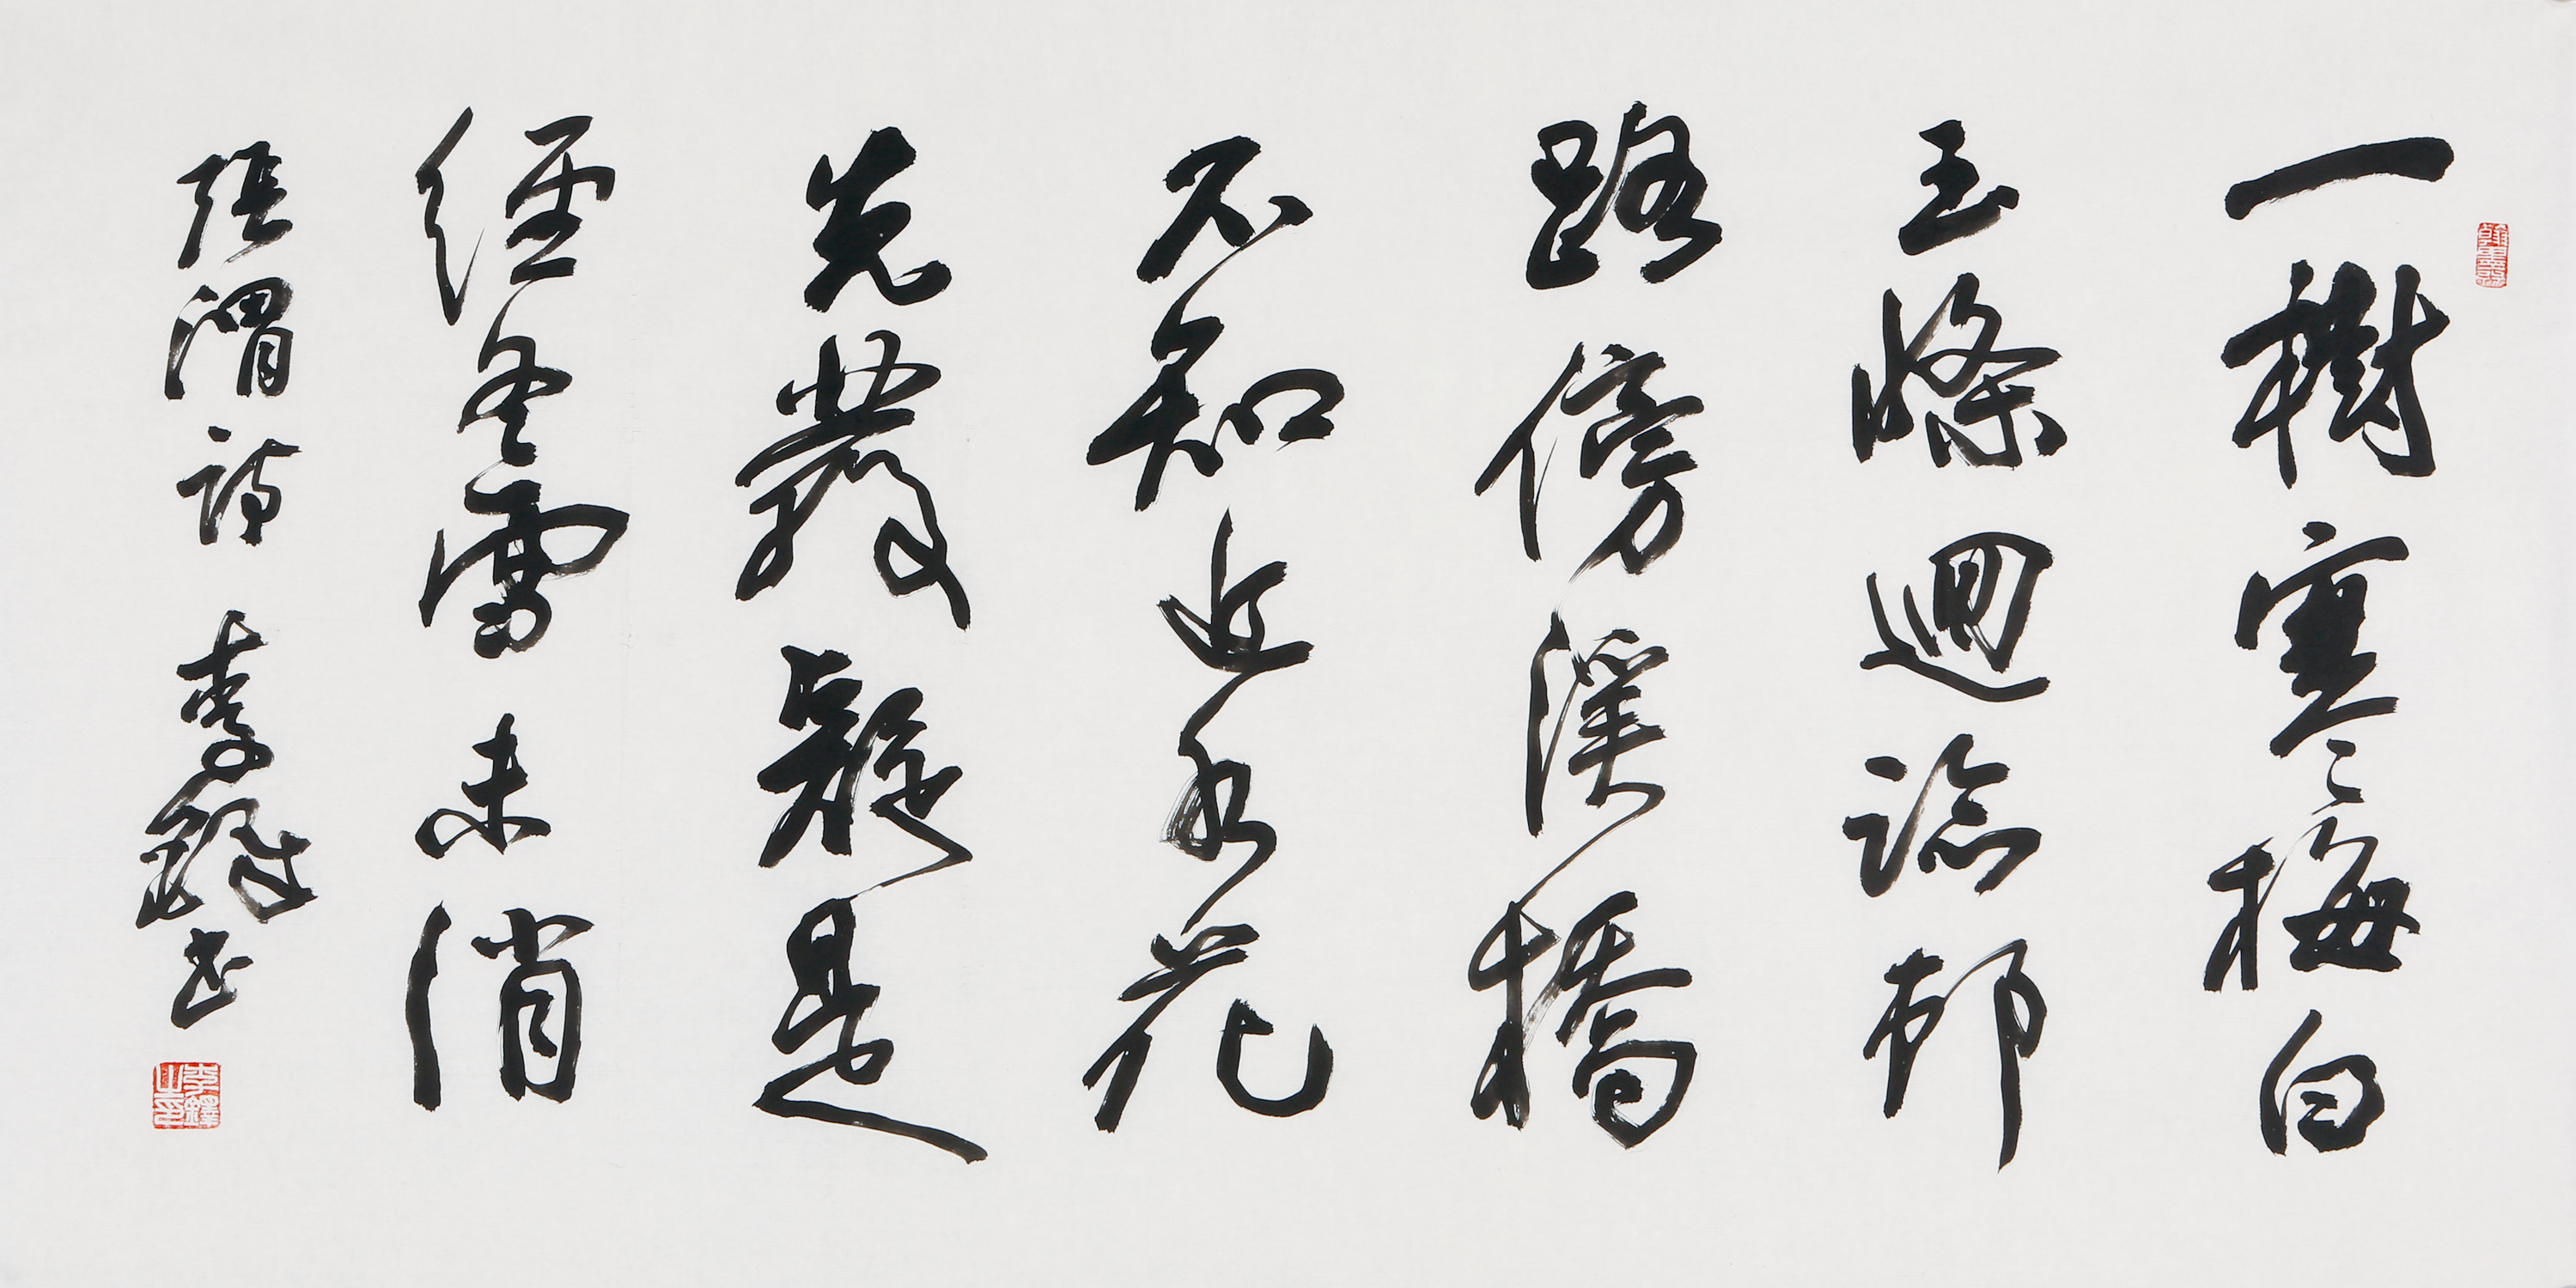 一樹寒梅白
玉條迥臨邨
路傍溪橋
不知近水花
先發疑是
經冬雪未消
張渭詩 李鐸書
李鐸之印